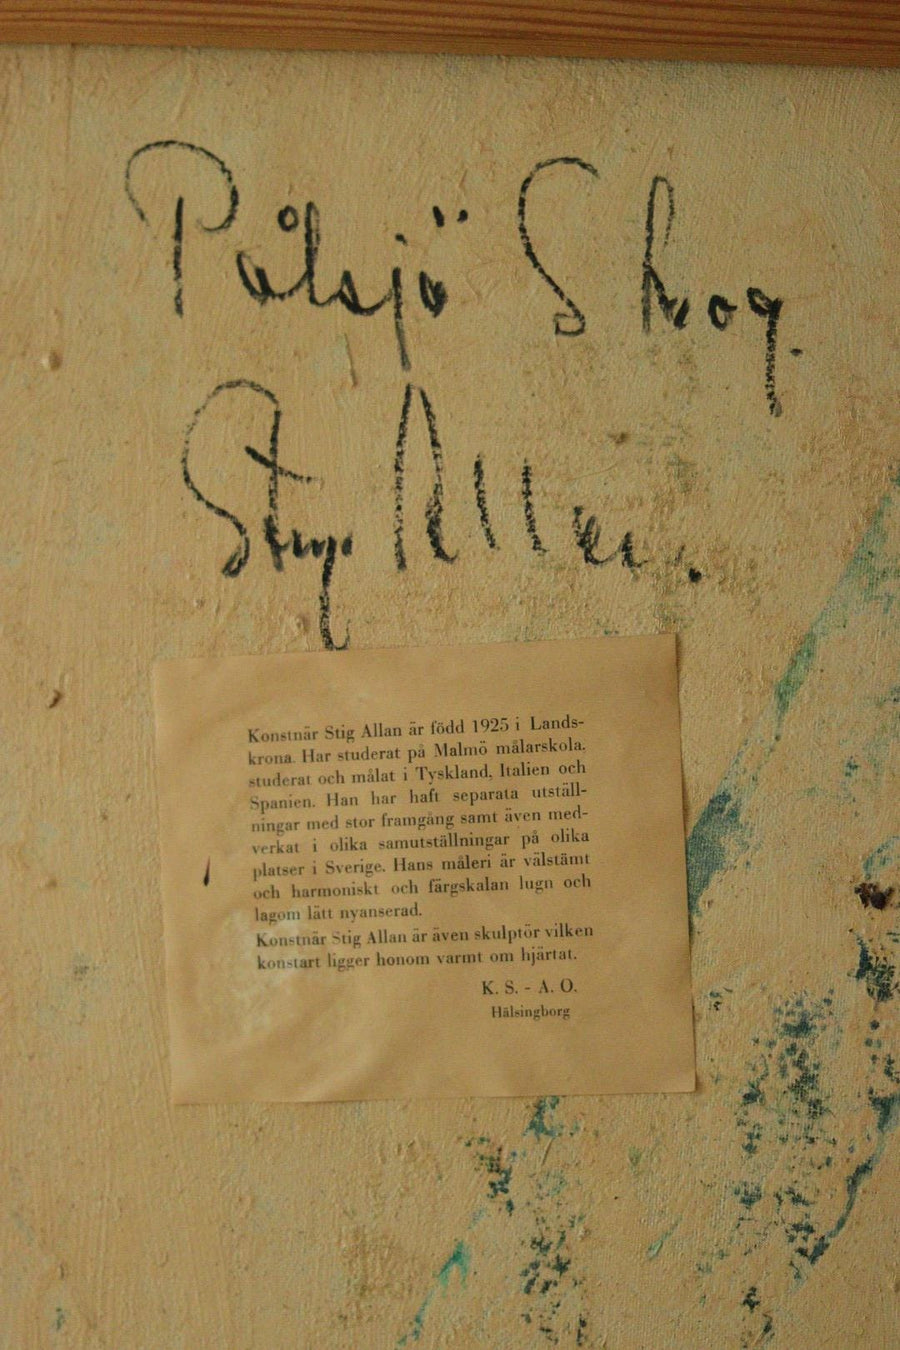 Pålsjö Skog.
Stig Allan.
Konstnär Stig Allan är född 1925 i Lands-
krona. Har studerat på Malmö målarskola,
studerat och målat i Tyskland, Italien och
Spanien. Han har haft separata utställ-
ningar med stor framgång samt även med-
verkat i olika samutställningar på olika
platser i Sverige. Hans måleri är välstämt
och harmoniskt och färgskalan lugn och
lagom lätt nyanserad.
Konstnär Stig Allan är även skulptör vilken
konstart ligger honom varmt om hjärtat.
K. S. - A. O.
Hälsingborg